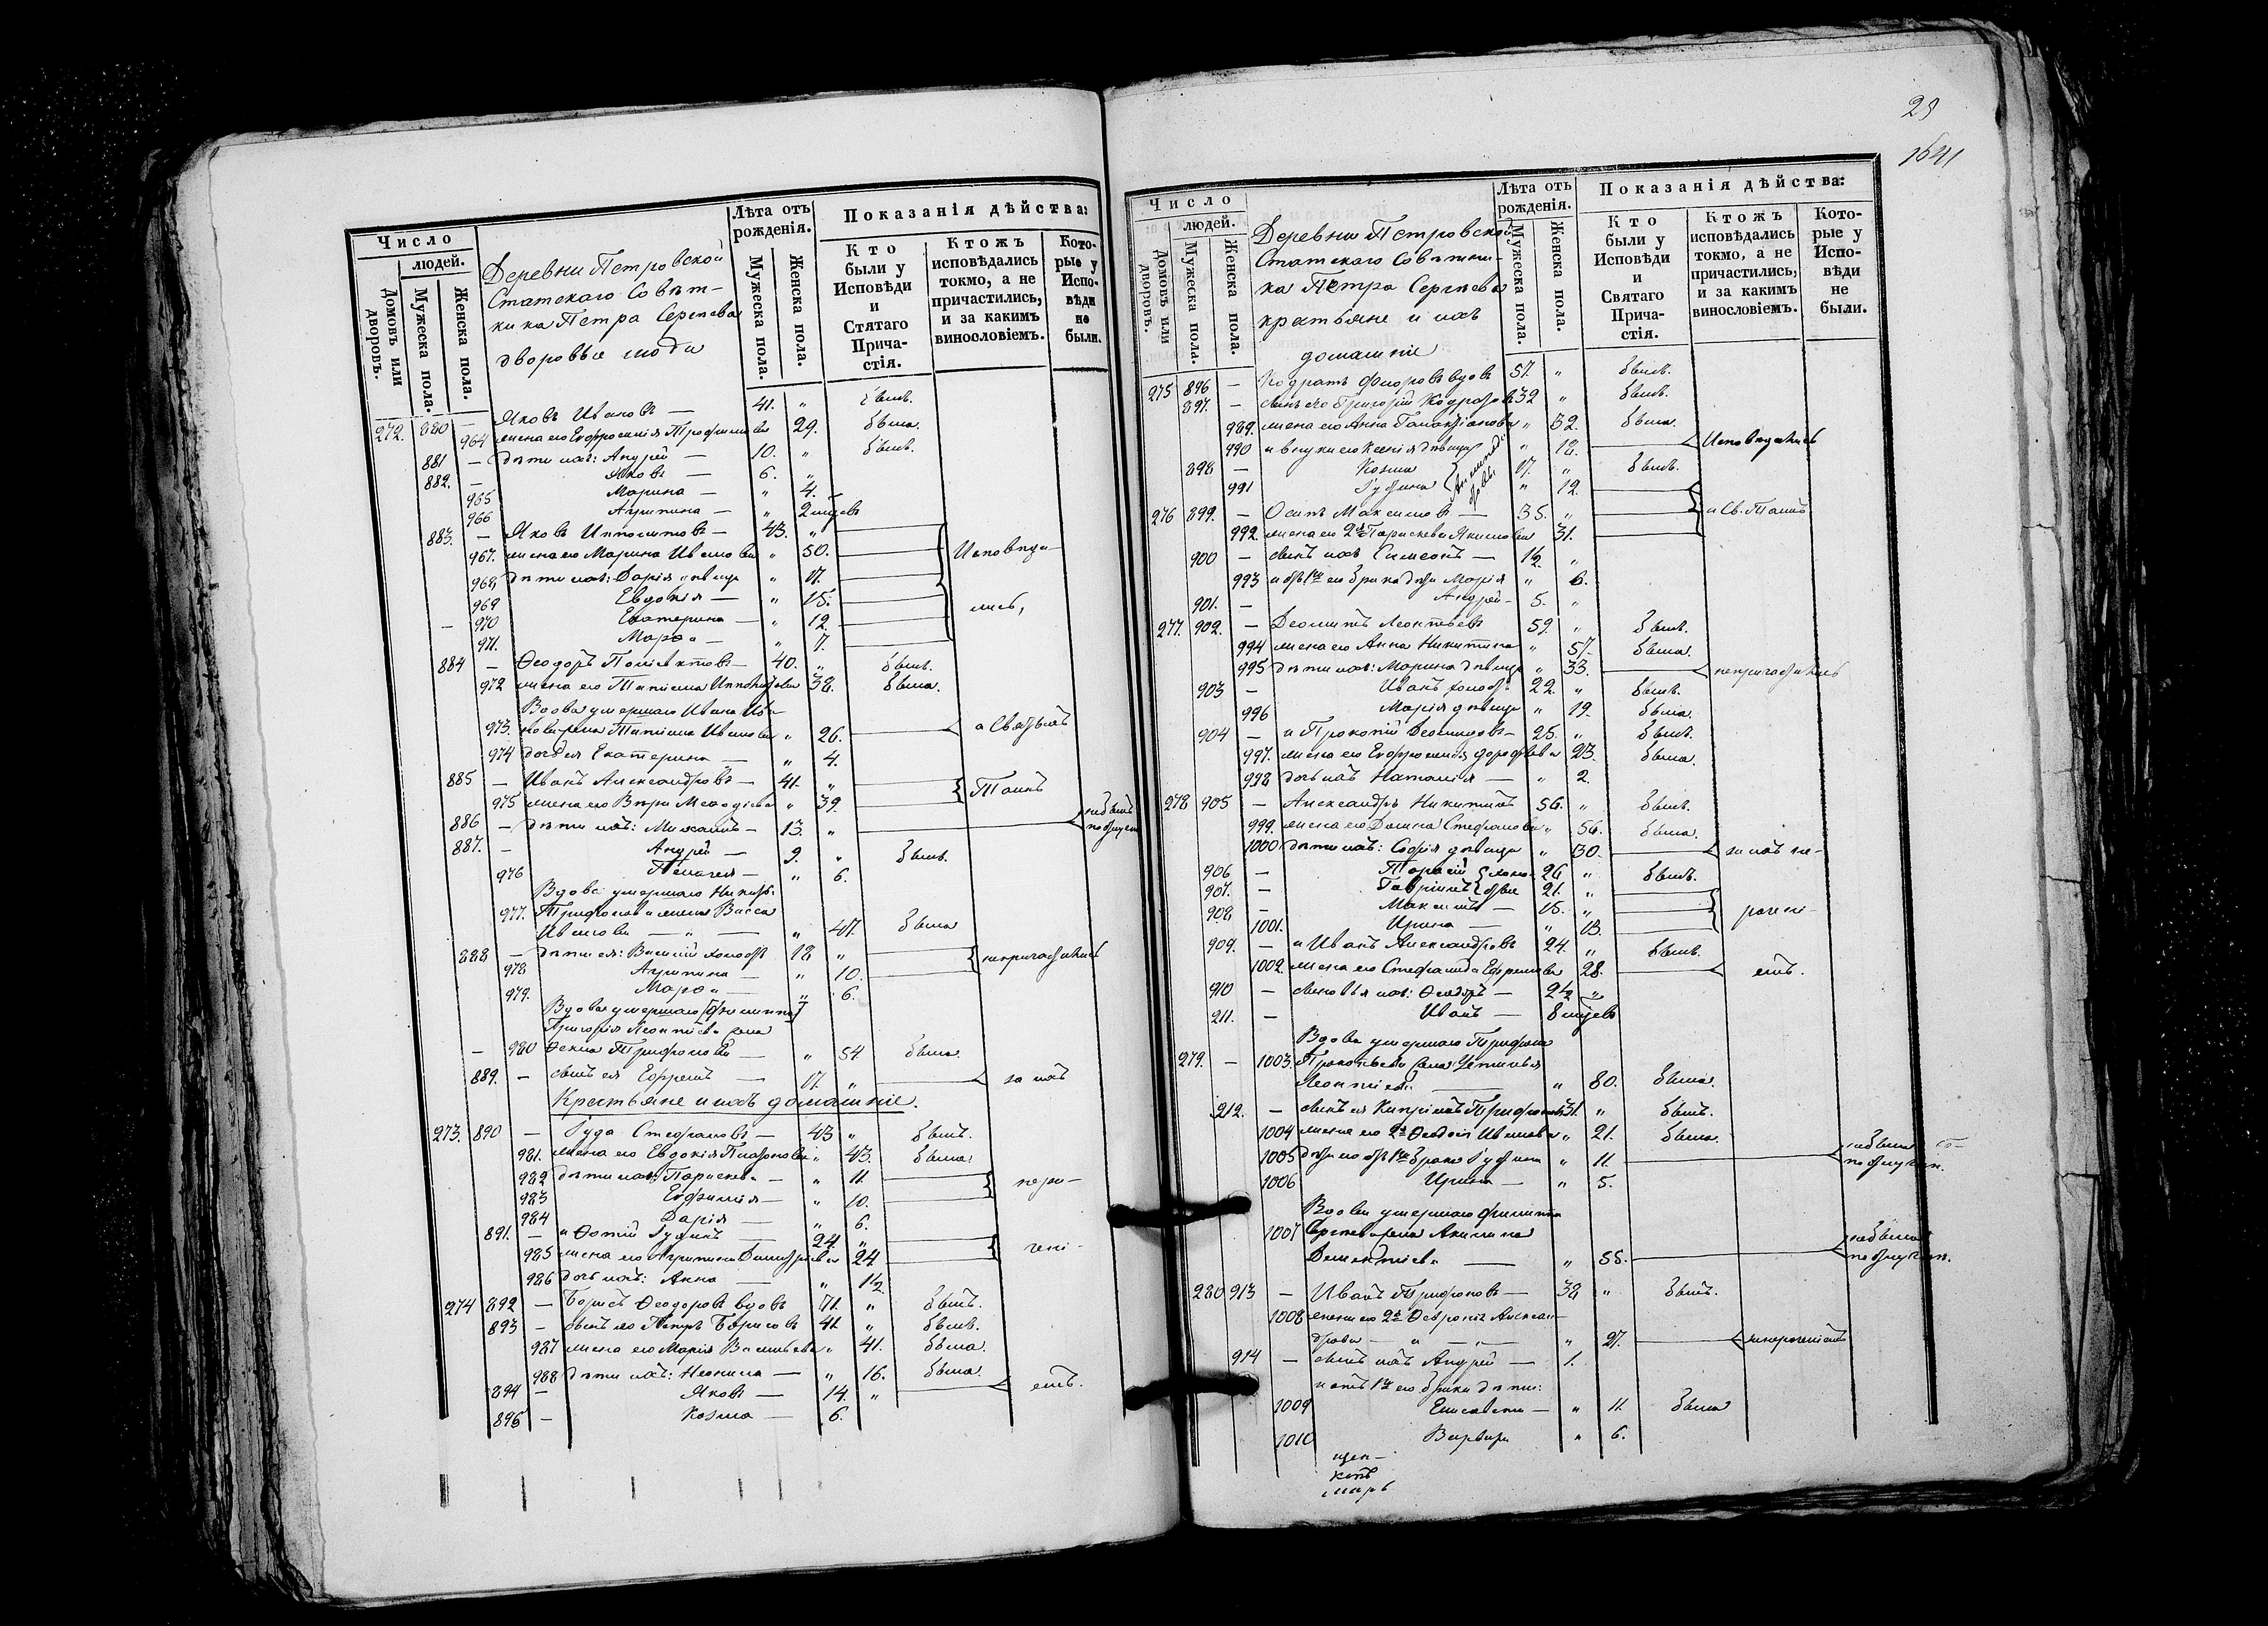 Число
людей.
Домовъ или дворовъ.
Мужеска пола.
Женска пола.
Деревни Петровской
Статскаго Совѣт-
ника Петра Сергѣева
дворовые люди
Лѣта отъ рожденія.
Мужеска пола.
Женска пола.
Показанія дѣйства:
Кто были у Исповѣди и Стятаго Прича- стія.
Ктожъ исповѣдались токмо, а не причастились, и за какимъ винословіемъ.
Кото- рые у Испо- вѣди не были.
272. 880 — Яковъ Ивановъ — 41. „ былъ.
964 жена его Евфросинія Трофимова 29. была.
881 — дѣти ихъ: Андрей — 10. „ былъ.
882. — Яковъ — 6. „
965 Марина — „ 4.
966 Агрипина — „ 2 мѣсяц
883. — Яковъ Ипполитовъ — 43. „
967. жена его Марина Иванова „ 50. Исповѣда-
968 дѣти ихъ: Дарія дѣвица „ 17.
969 Евдокія — „ 15. лись,
970 Екатерина — „ 12.
971. Марѳа — „ 7.
884 — Ѳеодоръ Поліевктовъ — 40. „ былъ.
972 жена его Татіана Ипполитова 38. была.
Вдова умершаго Ивана Ива-
973. нова жена Татіана Иванова „ 26. а Святыхъ
974 дочь ея Екатерина — „ 4.
885 — Иванъ Александровъ — 41. „ Таинъ
975 жена его Вѣра Меѳодіева „ 39.
886 — дѣти ихъ: Михаилъ — 13. „ небылъ
887. — Андрей — 9. „ былъ.
976 Пелагея — „ 6.
Вдова умершаго
977. Трифонова жена Васса
Иванова — „ — „ 47. была
888 — дѣти ея: Василій холостъ 18 „ непричастились
978 Агрипина — „ 10.
979. Марѳа — „ 6.
Вдова умершаго
Григорія Леонтіева жена
980 Ѳекла Трифонова — „ 54 была.
889. — сынъ ея Ефремъ — 17. „ за нихъ
Крестьяне и ихъ домашніе.
273. 890 — Іуда Стефановъ — 43 „ былъ.
981. жена его Евдокія Платонова „ 43. была.
982 дѣти ихъ: Параскева — „ 11.
983 Евфимія — „ 10.
984 Дарія — „ 6.
891. — и Ѳотій Іудинъ — 24. „
985 жена его Агрипина Димитріева 24
986 дочь ихъ: Анна — „ 1½
274 892 — Борисъ Ѳеодоровъ вдовъ 71. „ былъ.
893 — сынъ его Петръ Борисовъ 41 „ былъ.
987 жена его Марія Васильева „ 41. была.
988 дѣти ихъ: Неонила — „ 16. была.
894 — Яковъ — 14. „
896 — Козма — 6.
29
1641
Число
людей.
Домовъ или дворовъ.
Мужеска пола.
Женска пола.
Деревни Петровской
Статскаго Совѣтни-
ка Петра Сергѣева
крестьяне и ихъ
домашніе
Лѣта отъ рожденія.
Мужеска пола.
Женска пола.
Показанія дѣйства:
Кто были у Исповѣди и Святаго Прича- стія.
Ктожъ исповѣдались токмо, а не причастились, и за какимъ винословіемъ.
Кото- рые у Испо- вѣди не были.
275 896 — Кодратъ Флоровъ вдовъ 57. „ былъ.
897. — сынъ его Григорій Кодратовъ 32 „ былъ.
989. жена его Анна Галактіонова „ 32. была
990 и внуки его Ксенія дѣвица „ 18. Исповѣдались
898 — Козма 17. „ былъ.
991 Іуліана „ 12.
276 899. — Осипъ Максимовъ — 35. „ и Св. Таинъ
992 жена его 2я Параскева Якимова 31.
900 — сынъ ихъ Симеонъ — 1½ „
993 и отъ 1го его брака дѣти Марія „ 6.
901. — Андрей — 5. „
277. 902. — Деомидъ Леонтьевъ 59. „ былъ.
994 жена его Анна Никитина „ 57. была.
995 дѣти ихъ: Марина дѣвица „ 33. непричастились
903 — Иванъ холостъ 22. „ былъ.
996 Марія дѣвица „ 19. была.
904 — и Прокопій Деомидовъ — 25. „ былъ.
997. жена его Евфросинія Дороѳеева 23. была.
998 дочь ихъ Наталія — „ 2.
278 905 — Александръ Никитинъ 56. „ былъ.
999. жена его Домна Стефанова „ 56. была.
1000 дѣти ихъ: Софія дѣвица „ 30. за нихъ не-
906 — Тарасій холо- 26 „ былъ.
907. — Гавріилъ стые 21. „
908 — Максимъ — 15. „
1001. Ирина — „ 13.
909. — и Иванъ Александровъ 24. „ былъ.
1002. жена его Стефанида Ефремова 28. емъ.
910 — сыновья ихъ: Ѳеодоръ — 2½ „
211. — Иванъ — 8 мѣсяцев
Вдова умершаго Трифона
279. — 1003. Прокопьева жена Устинья
Леонтіева — „ 80. была.
212. — сынъ ея Кипріанъ Трифоновъ 31. „ былъ.
1004 жена его 2я Ѳеодосія Иванова „ 21. была.
1005 дѣти его отъ 1го брака Іуліана „ 11. небыла
1006 Ирина — „ 5.
Вдова умершаго Филиппа
1007 Сергѣева жена Акилина
„ 55. небыла
280 913 — Иванъ Трифоновъ — 38 „ былъ.
1008 жена его 2я Ѳевронія Алексан-
дрова — „ — „ 27.
914 — сынъ ихъ Андрей — 1.
и отъ 1го его брака дѣти:
1009 Елисавета — „ 11. была
1010 Варвара „ 6.